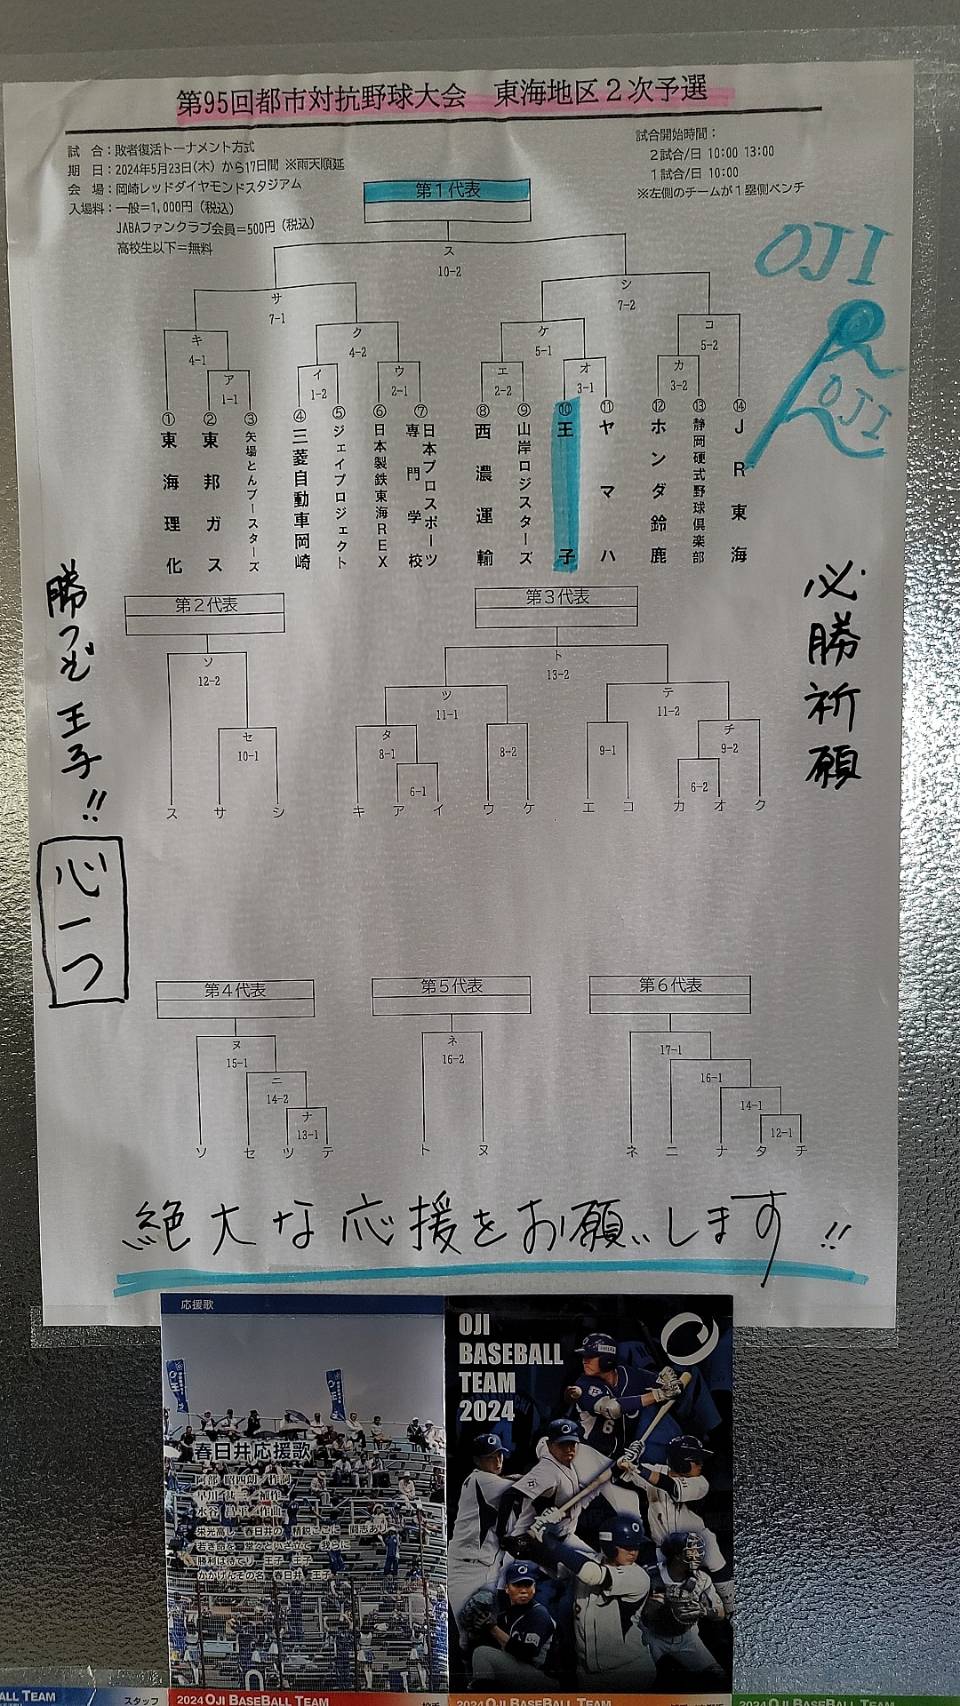 第95回都市対抗野球大会　東海地区２次予選
試　合：敗者復活トーナメント方式
期　日：2024年5月23日(木）から17日間　※雨天順延
会　場：岡崎レッドダイヤモンドスタジアム
入場料：一般=1,000円（税込）
JABAファンクラブ会員=500円（税込）
高校生以下=無料
試合開始時間：
２試合/日　10:00 13:00
１試合/日　10:00
※左側のチームが１塁側ベンチ
OJI
OJI
第１代表
ス
10-2
サ
7-1
シ
7-2
キ
4-1
ク
4-2
ケ
5-1
コ
5-2
ア
1-1
イ
1-2
ウ
2-1
エ
2-2
オ
3-1
カ
3-2
①東海理化
②東邦ガス
③矢場とんブースターズ
④三菱自動車岡崎
⑤ジェイプロジェクト
⑥日本製鉄東海REX
⑦日本プロスポーツ
専門学校
⑧西濃運輸
⑨山岸ロジスターズ
⑩王子
⑪ヤマハ
⑫ホンダ鈴鹿
⑬静岡硬式野球倶楽部
⑭JR東海
勝つぞ王子!!
心一つ
必勝祈願
第２代表
ソ
12-2
セ
10-1
ス　サ　シ
第３代表
ト
13-2
ツ
11-1
テ
11-2
タ
8-1
8-2
9-1
チ
9-2
6-1
6-2
キ　ア　イ　ウ　ケ　エ　コ　カ　オ　ク
第４代表
ヌ
15-1
ニ
14-2
ナ
13-1
ソ　セ　ツ　テ
第５代表
ネ
16-2
ト　ヌ
第６代表
17-1
16-1
14-1
12-1
ネ　ニ　ナ　タ　チ
絶大な応援をお願いします!!
応援歌
春日井応援歌
OJI
BASEBALL
TEAM
2024
スタッフ
2024 OJI BASEBALL TEAM